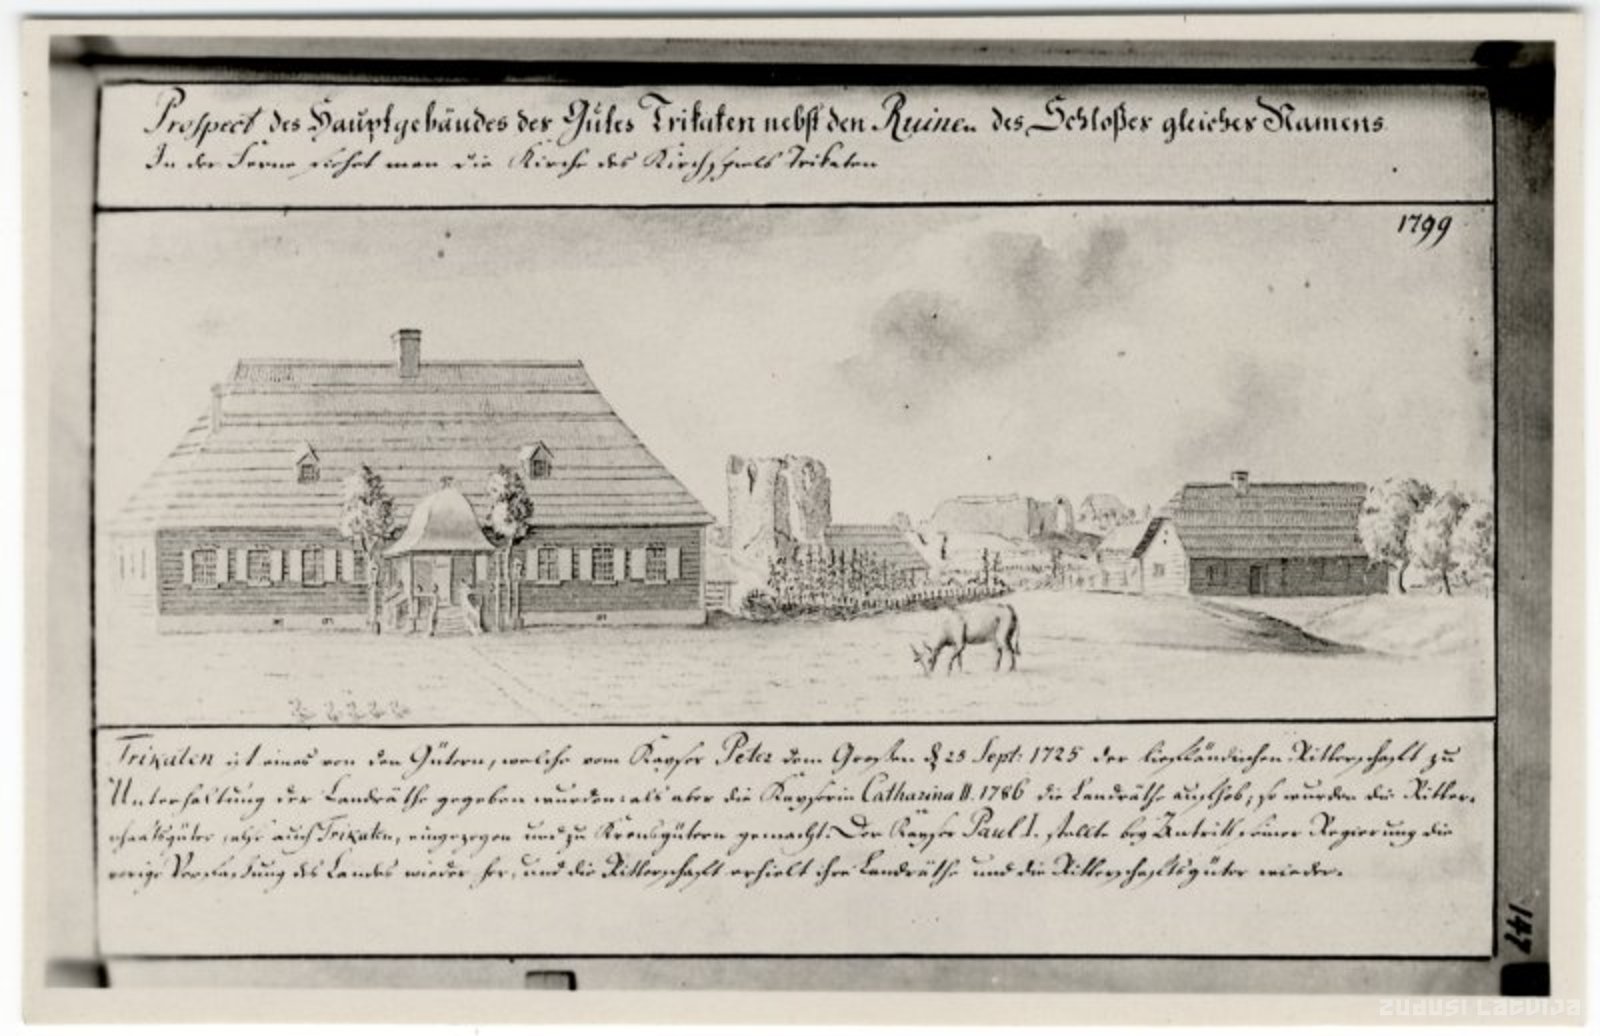 Prospect des Hauptgebäudes des Gutes Trikaten nebst den Ruinen des Schloßes gleiches Namens
In der Ferne siehet man die Kirche des Kirchspiels Trikaten
1799
Trikaten ist eines von den Gütern, welche vom Kayser Peter dem Großen d 25 Sept: 1725 der liefländischen Ritterschaft zu
Unterhaltung der Landräthe gegeben wurden: als aber die Kayserin Catharina II. 1786 die Landräthe aufhob, so wurden die Ritter-
schaftsgüter, also auch Trikaten, eingezogen und zu Kronsgütern gemacht. Der Kayser Paul I. stellte bey Antritt seiner Regierung die
vorige Verfassung des Landes wieder her, und die Ritterschaft erhielt ihre Landräthe und die Ritterschaftsgüter wieder.
147
zudusi Latvija